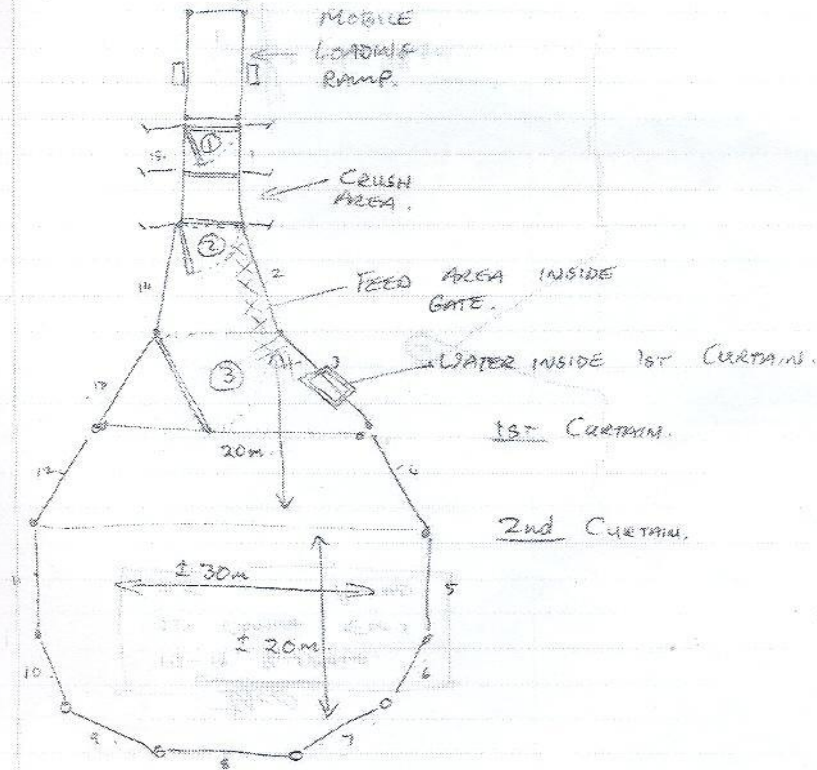 MOBILE
LOADING
RAMP.
①
15.
1
CRUSH
AREA.
②
14
2
FEED AREA INSIDE
GATE.
③
3
WATER INSIDE 1ST CURTAIN.
13
1st CURTAIN.
20m
12
4
2nd CURTAIN.
± 30m
5
± 20m
10
6
9
7
8